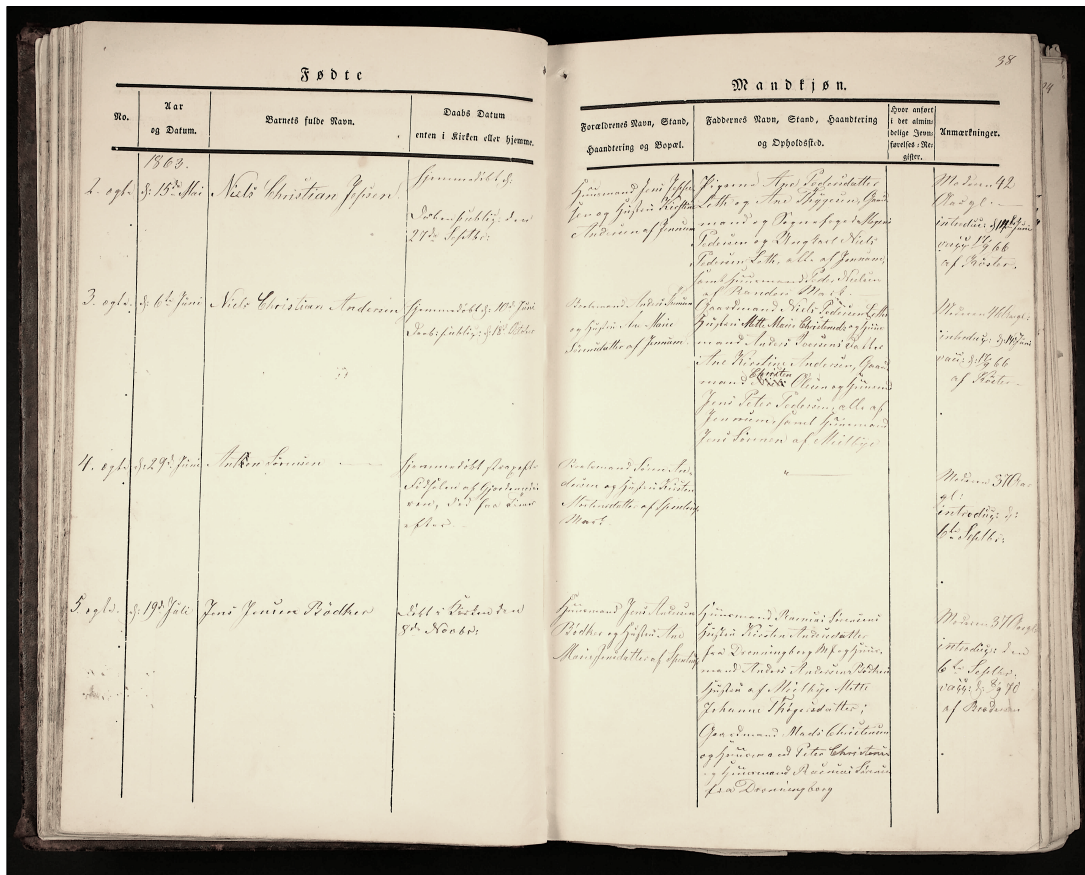 38
Fødte
Mandkjøn.
No.
Aar
og Datum.
Barnets fulde Navn.
Daabs Datum
enten i Kirken eller hjemme.
Forældrenes Navn, Stand,
Haandtering og Bopæl.
Faddernes Navn, Stand, Haandtering
og Opholdssted.
Hvor anført
i det almin-
delige Jevn-
førelses-Re-
gister.
Anmærkninger.
1863.
2. ægte d: 15de Mai
Niels Christian Jepsen
Hjemmedøbt d:
27de Septbr:
Huusmand Jens Jep-
sen og Hustru Kirstine
Andersen af Jennum
Pigerne Ane Pedersdatter
Loth og Ane Thøgersen, Gaard-
mand og Sognefoged
Pedersen og Ungkarl Niels
Pedersen Loth, alle af Jennum,
samt Huusmand Peder Nielsen
af Randers Mark.
Moderen 42
Aar gl.
introduc: d: 14de Juni
vacc: 17/9 66
af Köster.
3. ægte d: 6te Juni
Niels Christian Andersen
Hjemmedøbt d: 10de Juni
Daab: publiç: d: 18de October
Boelsmand Anders
og Hustru Ane Marie
Simonsdatter af Jennum
Gaardmand Niels Pedersen Loths
Hustru Mette Marie Christensd: og Huus-
mand Anders Iversens Datter
Ane Kirstine Andersen, Gaard-
mand Christen Olesen og Huusmd
Jens Peter Pedersen, alle af
Jennum, samt Huusmand
Jens Simonsen af Mellbye
Moderen
introduc: d: 14de Juni
vacc: d: 17/9 66
af Köster
4. ægte d: 29de Juni
Anton Sörensen
Hjemmedøbt strax efter
Fødselen af Gjordemode-
ren, død faa Timer
efter
Boelsmand Sören An-
dersen og Hustru Kirsten
Mortensdatter af Spentrup
Mark
Moderen 37 Aar
gl:
introduc: d:
6te Septbr:
5. ægte. d: 19de Juli
Jens Jensen Bödker
døbt i Kirken den
8de Novbr:
Huusmand Jens Andersen
Bödker og Hustru Ane
Marie Jensdatter af Spentrup
Huusmand Rasmus Sörensens
Hustru Kirsten Andersdatter
fra Dronningborg M. og Huus-
mand Anders Andersen Bödkers
Hustru af Mellbye Mette
Johanne Thøgersdatter;
Gaardmand Mads Christensen
og Huusmand Peter Christensen
og Huusmand Rasmus Sörensen
fra Dronningborg
Moderen 37 Aar gl:
introduc: den
6te Septbr:
af